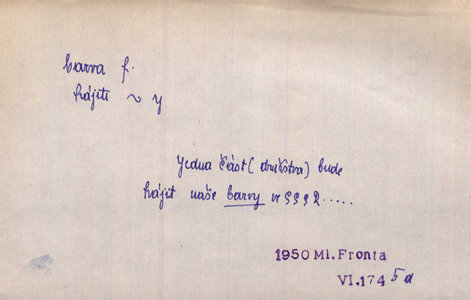 barva f.
hájiti ~ y
Jedna část (družstva) bude
hájit naše barvy ve SSSR.....
1950 Ml. Fronta
VI.174 5a